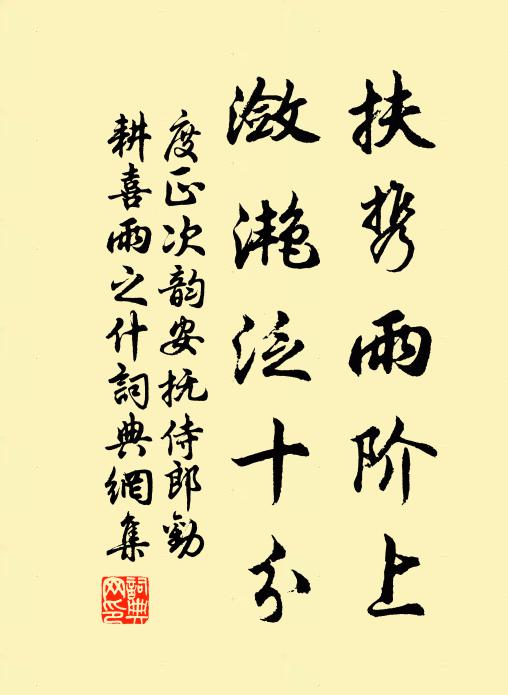 扶携雨阶上
潋滟泛十分
度正次韵安抚侍郎劝
耕喜雨之什詞典網集
詞典网印